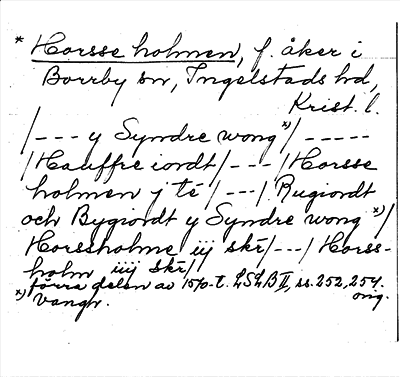 * Horsse holmen, f. åker i
Borrby sn, Ingelstads hd,
Krist. l.
/--- y Syndre wong x)/ -----
/Hauffre iordt/---/Horsse
holmen j tē /---/ Rugiordt
och Bygiordt y Syndre wong x)/
Horssholme iij skr̄/---/Horss-
holm iiij skr̄//
förra delen av 1570-t. LSLB II, ss. 252, 254.
orig.
x) Vångr.